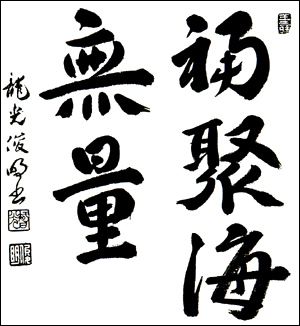 福聚海
無量
龍光俊明書